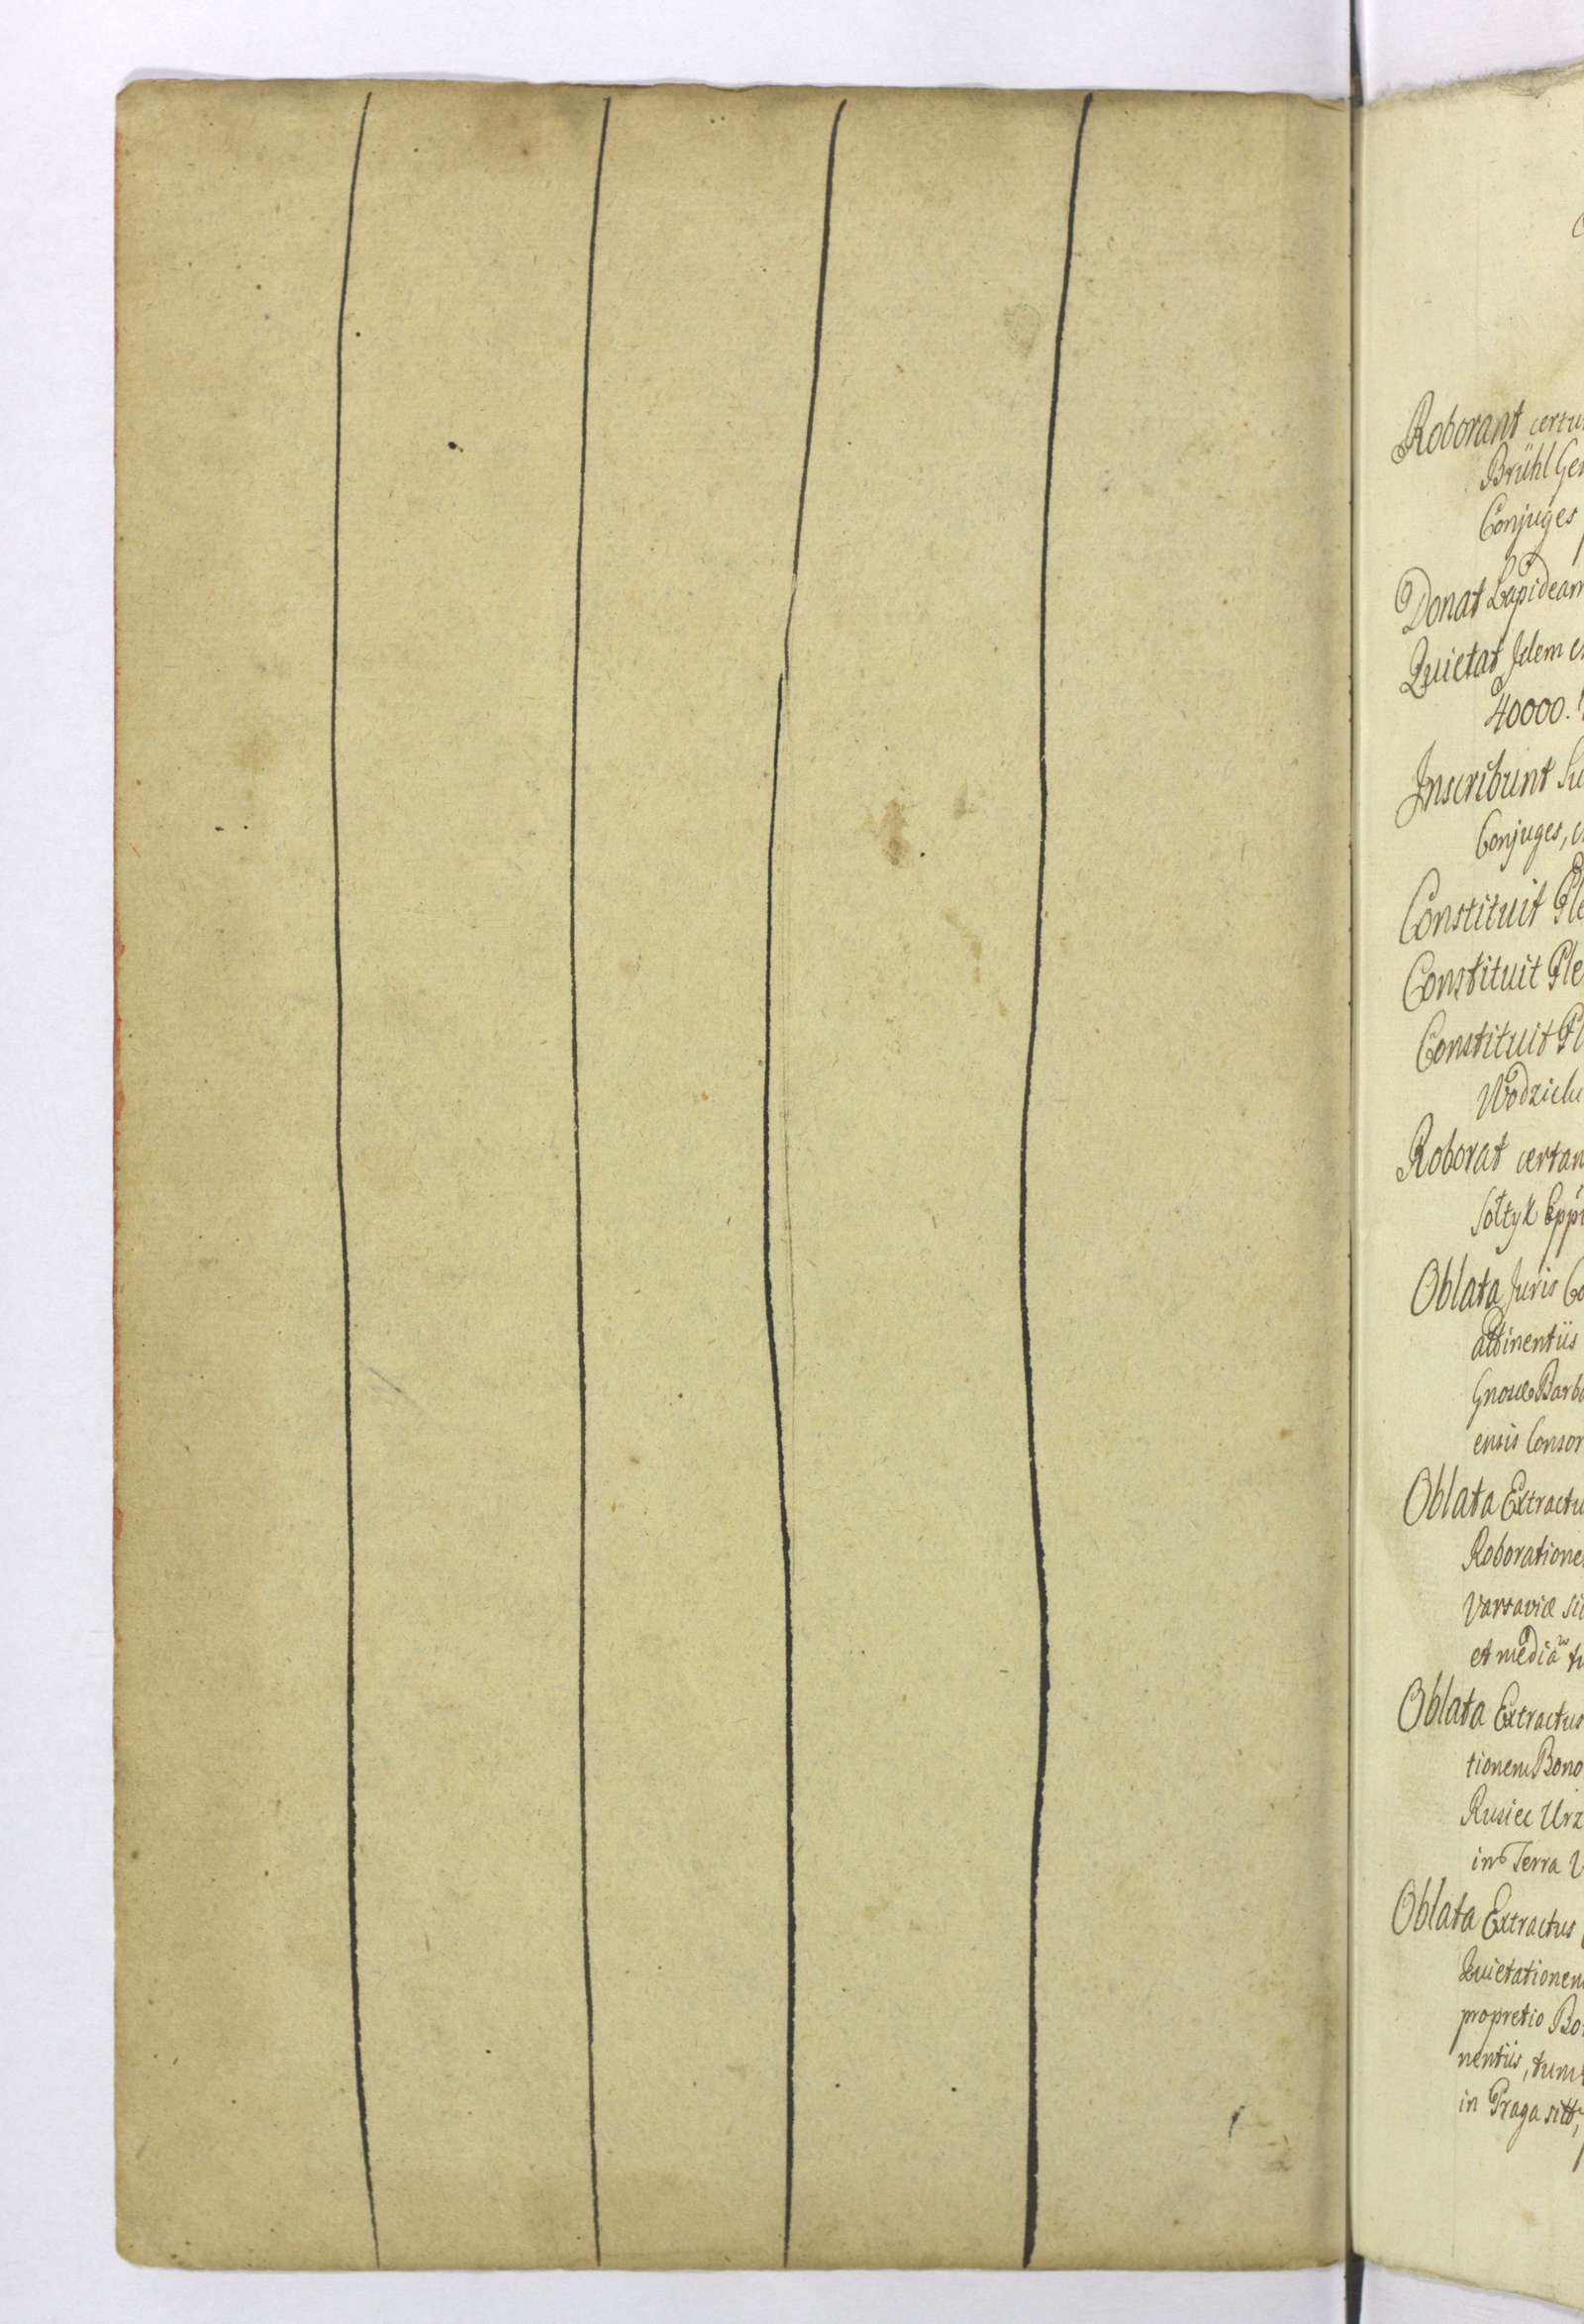 Roborant certu
Brühl Gen
Conjuges
Donat Lapideam
Quietat Idem e
40000.
Inscribunt Su
Conjuges,
Constituit Ple
Constituit Ple
Constituit Pl
Wodzick
Roborat certam
Sołtyk Epp
Oblata Juris Co
attinentiis
Gnosæ Barba
ensis Consor
Oblata Extractu
Roboratione
Varsaviæ si
et media tu
Oblata Extractus
tionem Bono
Rusiec Urz
in Terra V
Oblata Extractus
Quietationem
pro pretio Bo
nentiis, tum
in Praga sitt,